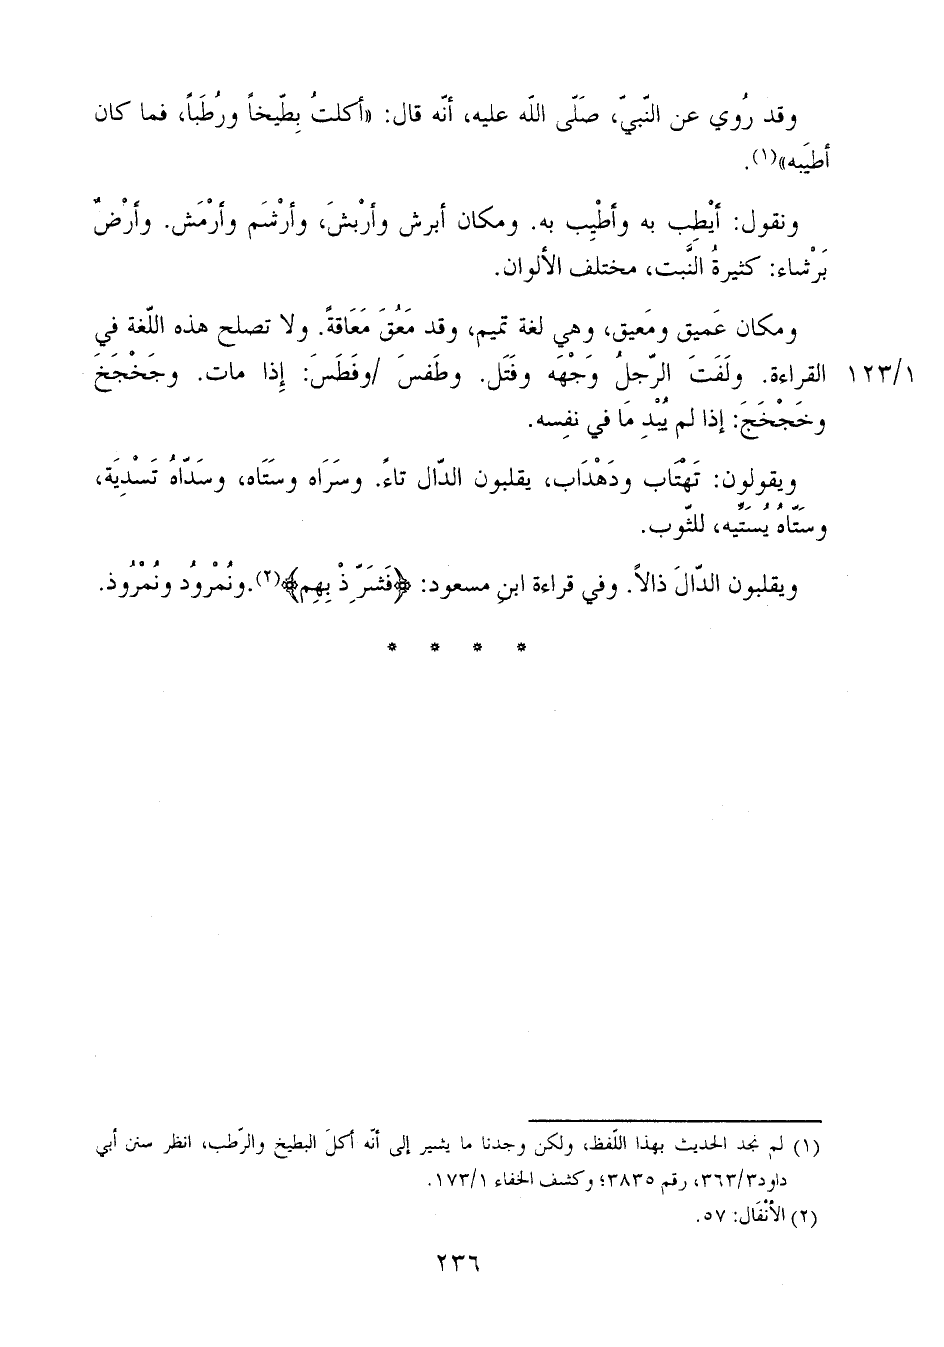 وقد رُوي عن النّبيّ، صَلّى الله عليه، أنّه قال: «أكلتُ بِطّيخاً ورُطَباً، فما كان
أطيَبه»(١).
ونقول: أيْطِب به وأطْيِب به. ومكان أبرش وأرْبشَ، وأرْشَم وأرْمَش. وأرْضٌ
بَرْشاء: كثيرةُ النَّبت، مختلف الألوان.
ومكان عَميق ومَعيق، وهي لغة تميم، وقد مَعُقَ مَعَاقةً. ولا تصلح هذه اللّغة في
١٢٣/١ القراءة. ولَفَتَ الرّجلُ وَجْهَه وفَتَل. وطَفسَ /وفَطَسَ: إذا مات. وجَخْجَخَ
وخَجْخَجَ: إذا لم يُبْدِ مَا في نفسِه.
ويقولون: تَهْتَاب ودَهْدَاب، يقلبون الدّال تاءً. وسَرَاه وسَتَاه، وسَدّاهُ تَسْدِيَة،
وسَتّاهُ يُستّيه، للثّوب.
ويقلبون الدّالَ ذالاً. وفي قراءة ابنِ مسعود: ﴿فَشَرِّذْ بِهِم﴾(٢).ونُمْرُود ونُمْرُوذ.
* * * *
(١) لم نجد الحديث بهذا اللّفظ، ولكن وجدنا ما يشير إلى أنّه أكلَ البطيخ والرّطب، انظر سنن أبي
داود٣/٣٦٣، رقم ٣٨٣٥؛ وكشف الخفاء ١٧٣/١.
(٢) الأنْفَال: ٥٧.
٢٣٦